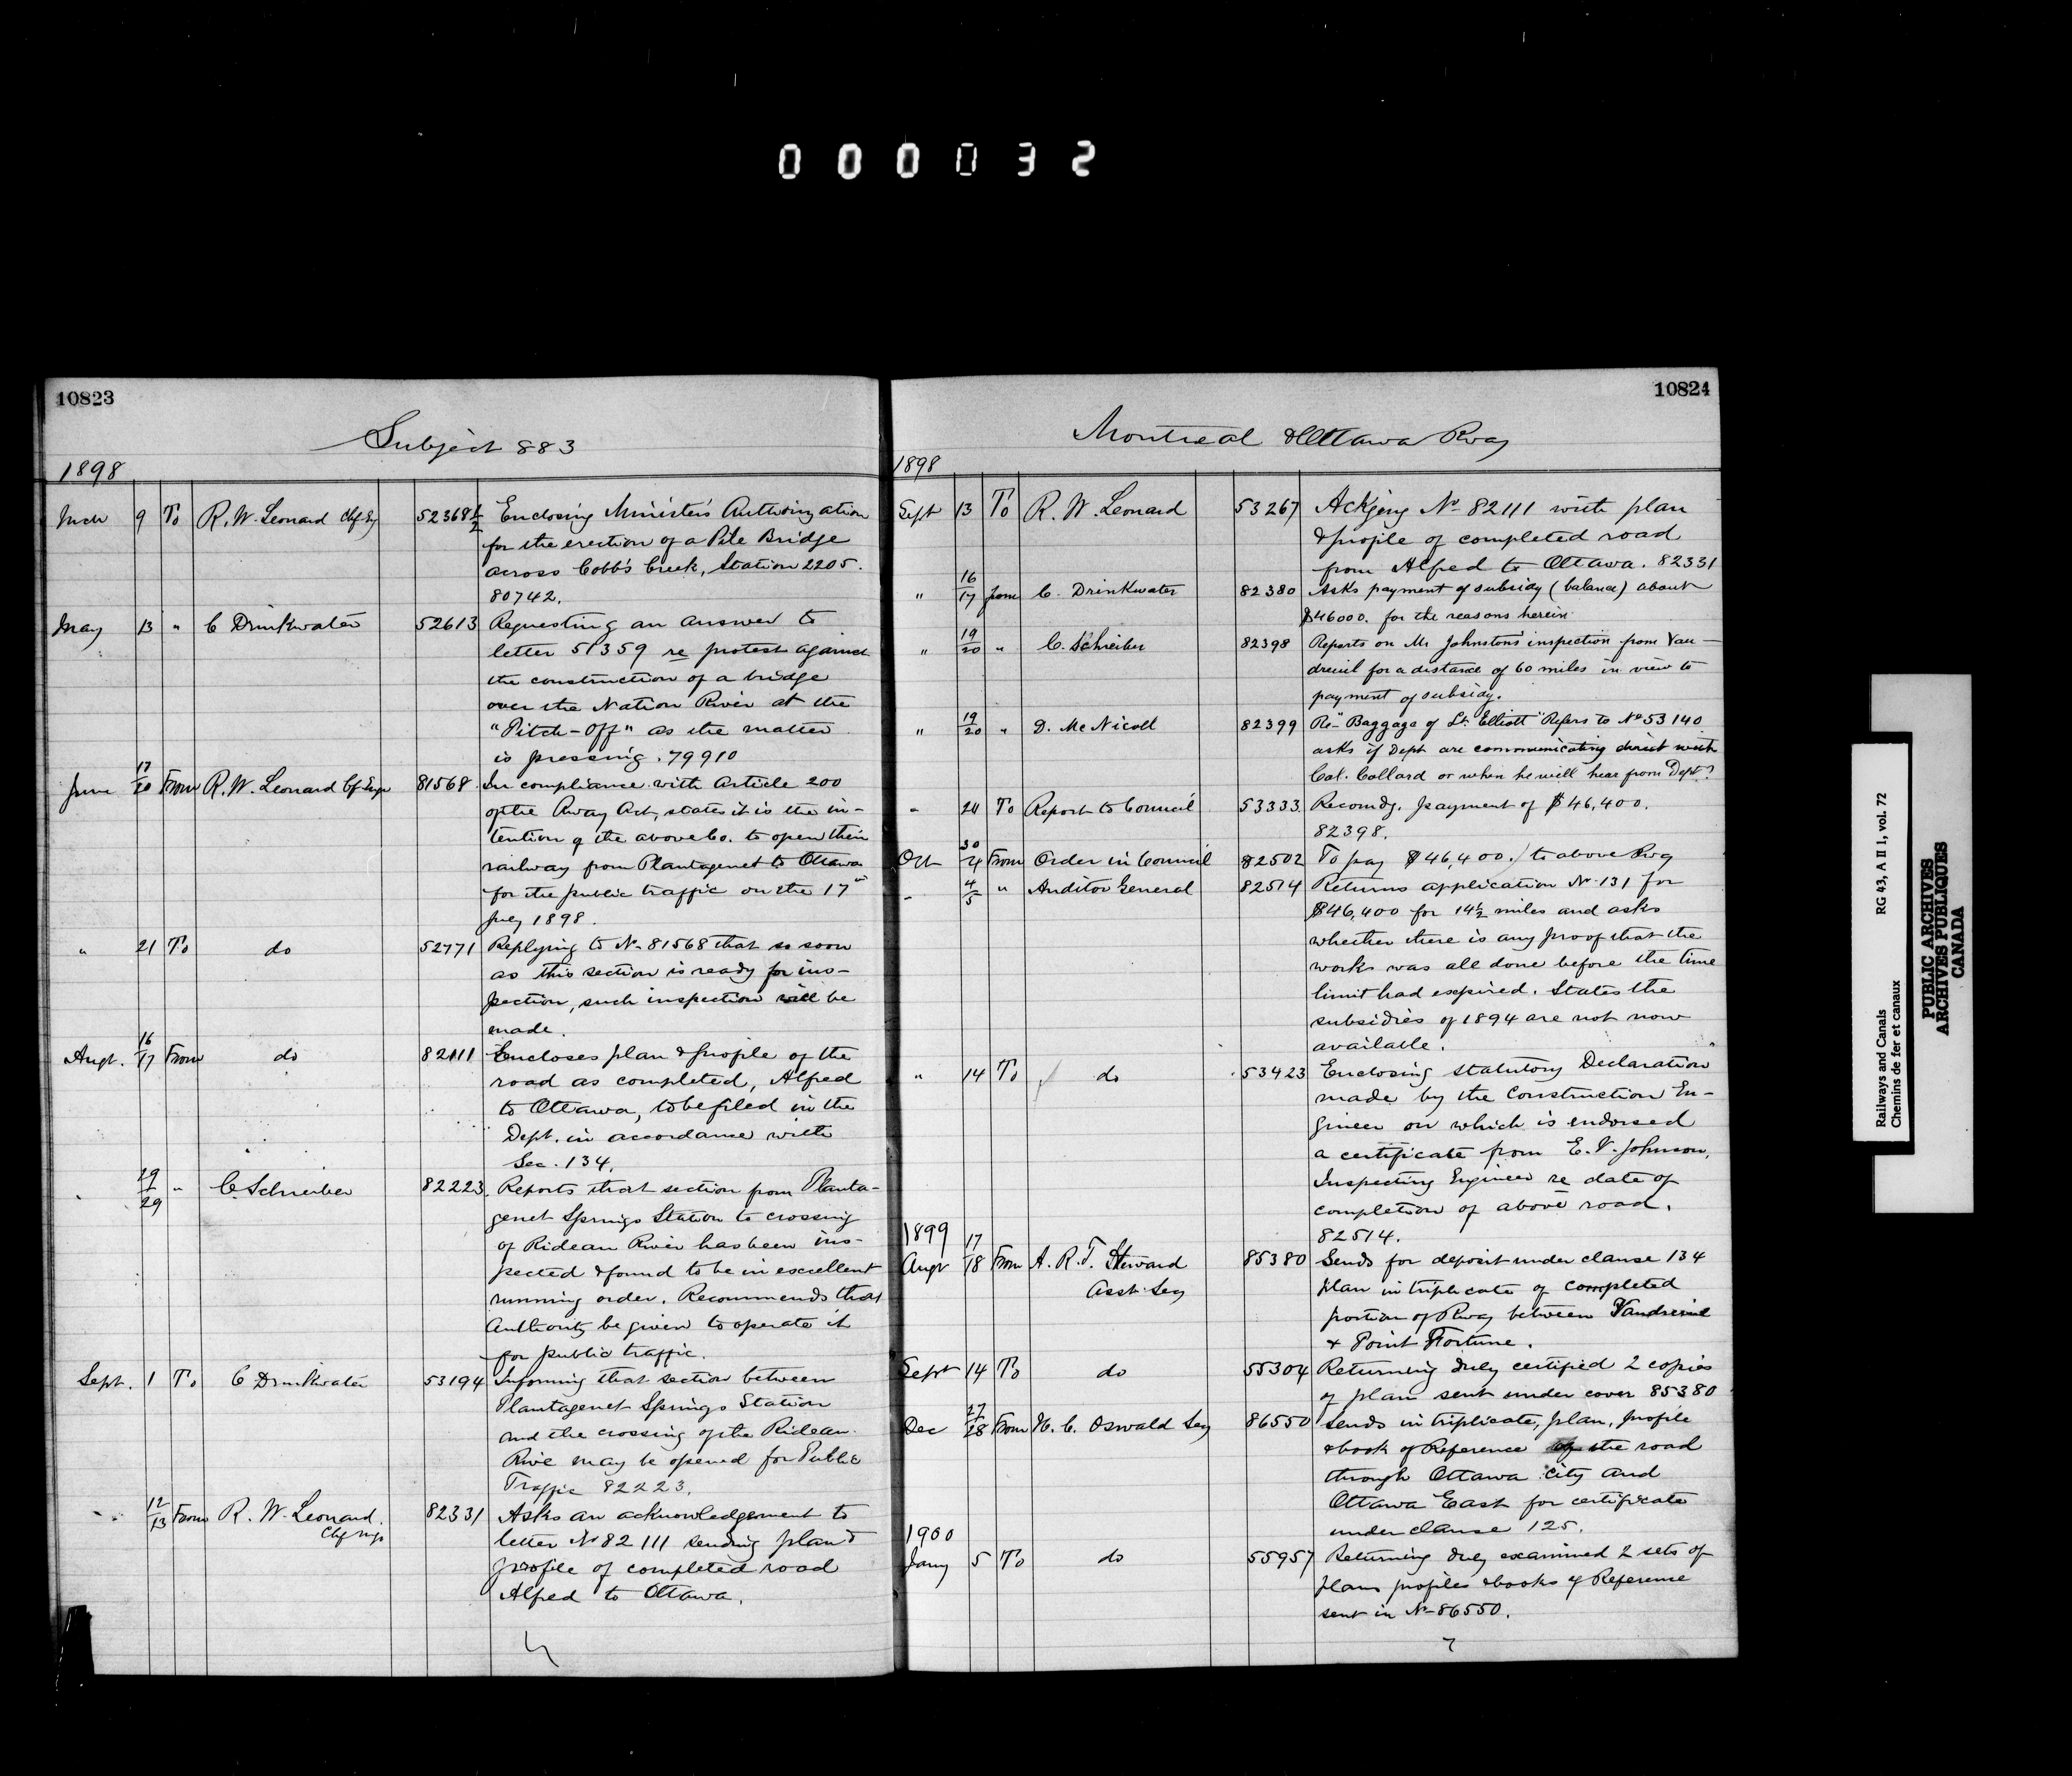 000032
10823
Subject 883
1898
Mch 9 To R. W. Leonard Chf Eng 52368½ Enclosing Minister's Authorization
for the erection of a Pile Bridge
across Cobb's Creek, Station 2205.
80742.
May 13 " C Drinkwater 52613 Requesting an answer to
letter 51359 re protest against
the construction of a bridge
over the Nation River at the
"Pitch-Off" as the matter
is pressing. 79910
June 17/20 From R. W. Leonard Cf Engr 81568 In compliance with Article 200
of the Rway Act, states it is the in-
tention of the above Co. to open their
railway from Plantagenet to Ottawa
for the public traffic on the 17"
July 1898.
" 21 To do 52771 Replying to No 81568 that so soon
as this section is ready for ins-
pection, such inspection will be
made.
Augt. 16/17 From do 82111 Encloses plan & profile of the
road as completed, Alfred
to Ottawa, to be filed in the
Dept. in accordance with
Sec. 134.
" 29/29 " C. Schreiber 82223. Reports that section from Planta-
genet Springs Station to crossing
of Rideau River has been ins-
pected & found to be in excellent
running order. Recommends that
Authority be given to operate it
for public traffic.
Sept. 1 To C Drinkwater 53194 Informing that section between
Plantagenet Springs Station
and the crossing of the Rideau
Rive may be opened for Public
Traffic 82223.
" 12/13 From R. W. Leonard. 82331 Asks an acknowledgement to
letter No 82111 sending plan &
profile of completed road
Alfred to Ottawa.
10824
Montreal & Ottawa Rway
1898
Sept 13 To R. W. Leonard 53267 Ackging No 82111 with plan
& profile of completed road
from Alfred to Ottawa. 82331
" 16/17 from C. Drinkwater 82380 Asks payment of subsidy (balance) about
$46000. for the reasons herein
" 19/20 " C. Schreiber 82398 Reports on Mr Johnston's inspection from Vau-
dreuil for a distance of 60 miles in view to
payment of subsidy.
" 19/20 " D. McNicoll 82399 Re "Baggage of Lt. Elliott" Refers to No 53140
asks if Dept are communicating direct with
Col. Collard or when he will hear from Dept?
" 24 To Report to Council 53333. Recomdg. payment of $46,400.
82398.
Oct 30/4 From Order in Council 82502 To pay $46,400. to above Rwy
" 4/5 " Auditor General 82514 Returns application No 131 for
$46,400 for 14½ miles and asks
whether there is any proof that the
works was all done before the time
limit had expired. States the
subsidies of 1894 are not now
available.
" 14 To do 53423 Enclosing Statutory Declaration
made by the Construction En-
gineer on which is endorsed
a certificate from E. V. Johnson,
Inspecting Engineer re date of
completion of above road.
82514.
1899
Augt 17/18 From A. R. T. Steward 85380 Sends for deposit under clause 134
Asst. Secy plan in triplicate of completed
portion of Rway between Vaudreuil
& Point Fortune.
Sept 14 To do 55304 Returning duly certified 2 copies
of plan sent under cover 85380
Dec 27/28 From H. C. Oswald Secy 86550 Sends in triplicate, plan, profile
& book of Reference of the road
through Ottawa City and
Ottawa East for certificate
under clause 125.
1900
Jany 5 To do 55957 Returning duly examined 2 sets of
plans profiles & books of Reference
sent in No 86550.
Railways and Canals RG 43, A II 1, vol. 72
Chemins de fer et canaux
PUBLIC ARCHIVES
ARCHIVES PUBLIQUES
CANADA